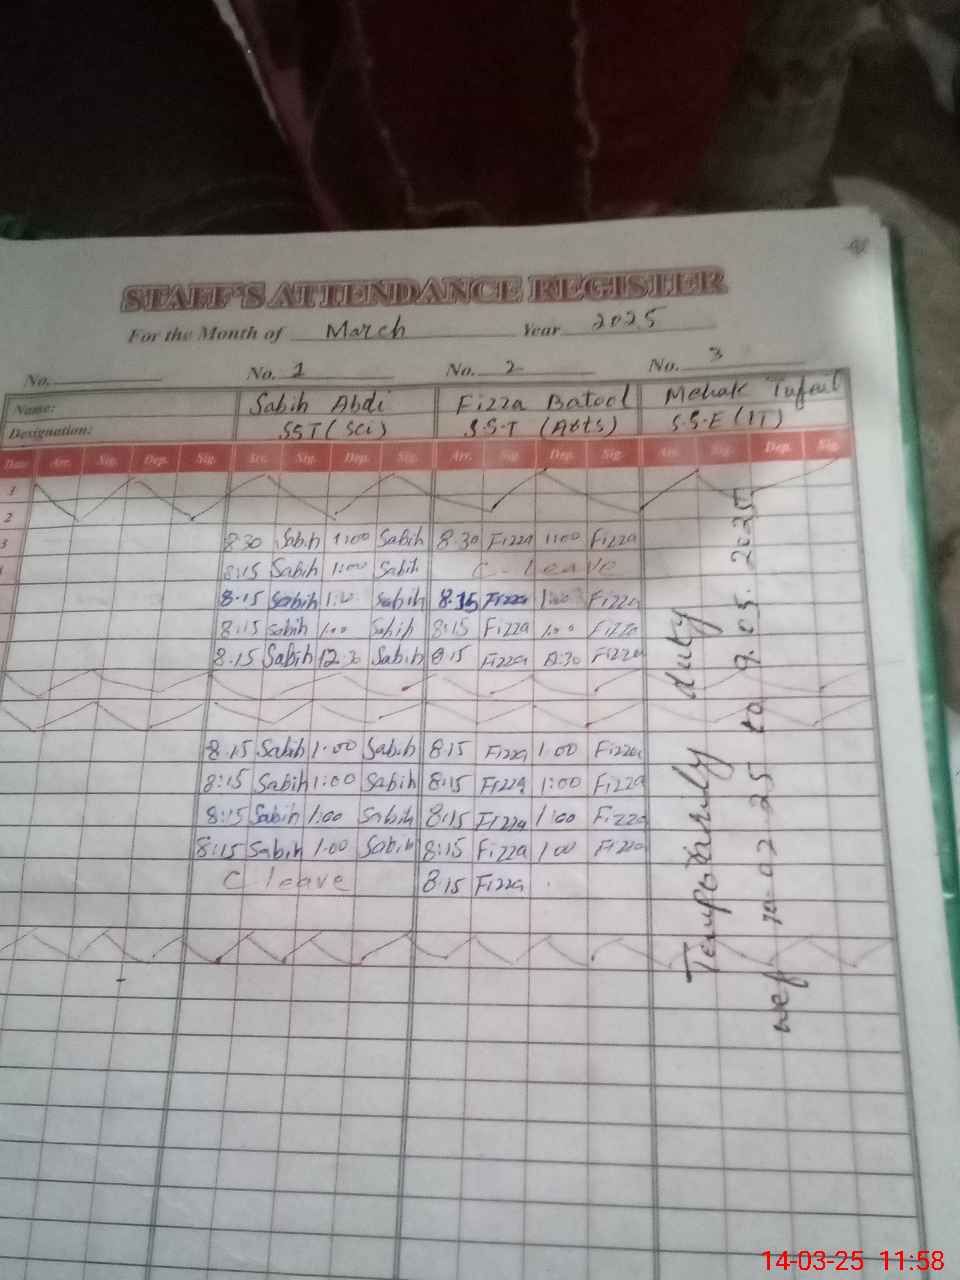 STAFF'S ATTENDANCE REGISTER
For the Month of March Year 2025
No. No. 1 No. 2 No. 3
Name: Sabih Abdi Fizza Batool Mehak Tufail
Designation: SST (Sci) S.S.T (Arts) S.S.E (IT)
Date Arr. Sig. Dep. Sig. Arr. Sig. Dep. Sig. Arr. Sig. Dep. Sig. Arr. Sig. Dep. Sig.
1
2
3 8:30 Sabih 1:00 Sabih 8:30 Fizza 1:00 Fizza
8:15 Sabih 1:00 Sabih C-leave
8.15 Sabih Sabih 8.15 Fizza Fizza
8:15 Sabih 1:00 Sabih 8:15 Fizza 1:00 Fizza
8.15 Sabih 12:30 Sabih 8:15 Fizza 12:30 Fizza
8.15 Sabih 1:00 Sabih 8:15 Fizza 1:00 Fizza
8:15 Sabih 1:00 Sabih 8:15 Fizza 1:00 Fizza
8:15 Sabih 1:00 Sabih 8:15 Fizza 1:00 Fizza
8:15 Sabih 1:00 Sabih 8:15 Fizza 1:00 Fizza
C leave 8.15 Fizza
Temporarily duty
wef 10-02-25 to 9.05.2025
14-03-25 11:58